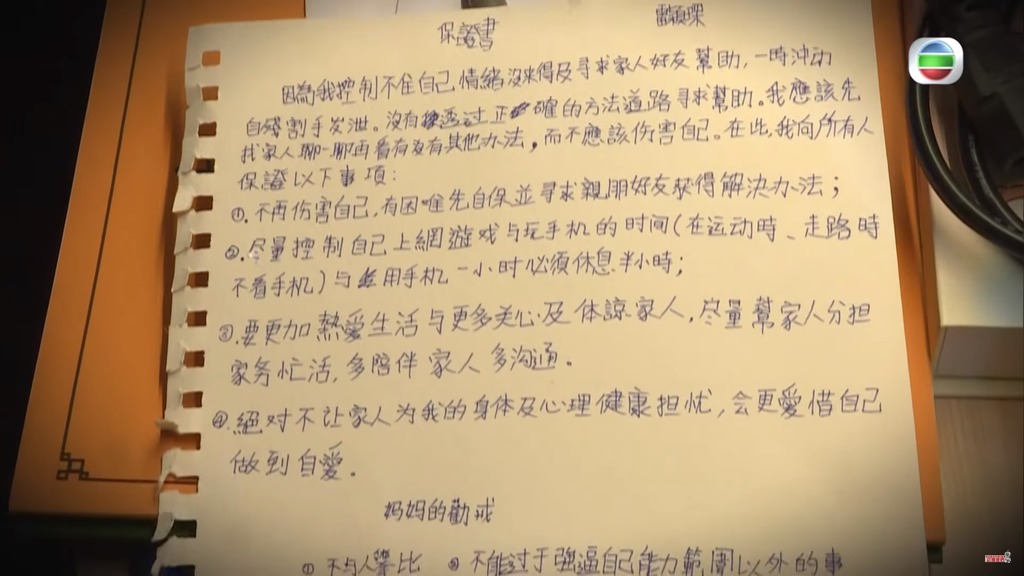 保證書
因為我控制不住自己情緒沒來得及尋求家人好友幫助,一時沖动
自殘割手发泄。沒有透过正確的方法道路尋求幫助。我應該先
找家人聊一聊再看有沒有其他办法,而不應該伤害自己。在此,我向所有人
保證以下事項:
①.不再伤害自己,有困难先自保並尋求親朋好友获得解决办法;
②.尽量控制自己上網遊戏与玩手机的时间(在运动時、走路時
不看手机)与使用手机一小时必须休息半小時;
③.要更加熱爱生活与更多关心及体諒家人,尽量幫家人分担
家务忙活,多陪伴家人多沟通。
④.絕对不让家人为我的身体及心理健康担忧,会更愛惜自己
做到自爱。
妈妈的勸戒
①不与人攀比 ②不能过于强逼自己能力範圍以外的事